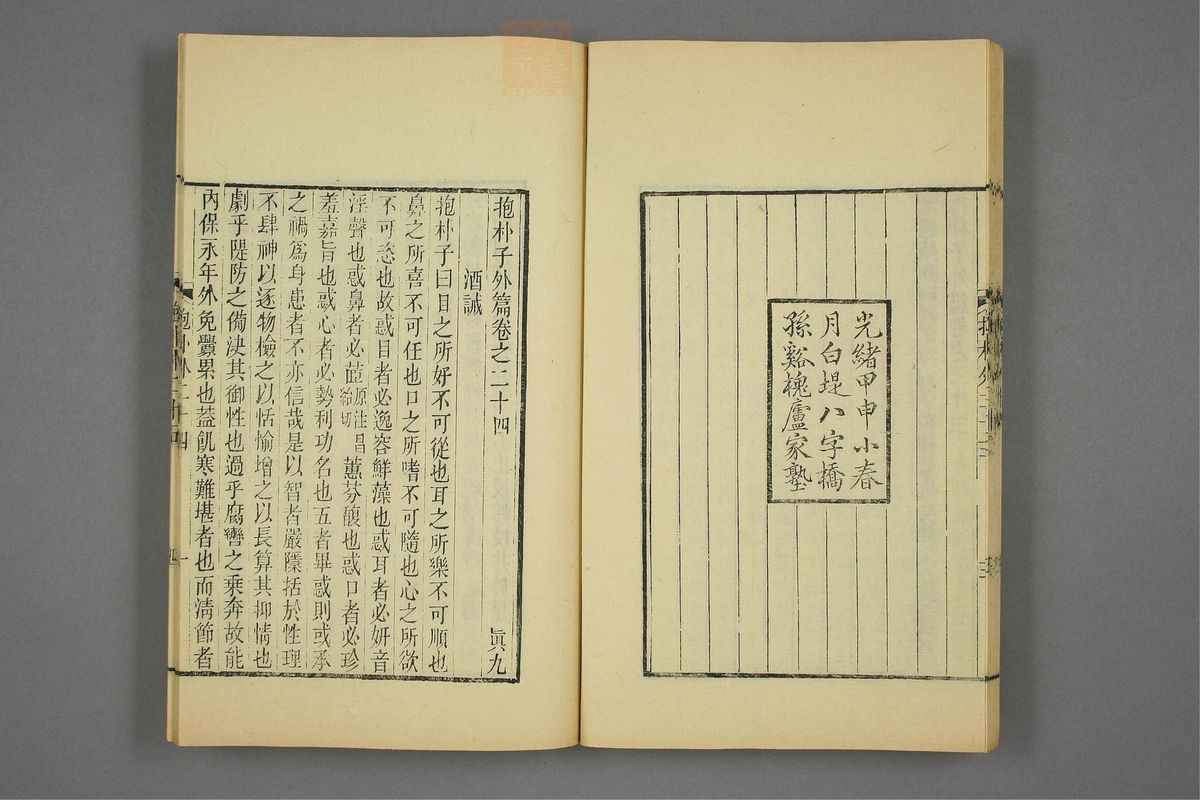 光緒甲申小春
月白堤八字橋
孫谿槐廬家塾
抱朴子外篇卷之二十四 眞九
酒誡
抱朴子曰目之所好不可從也耳之所樂不可順也
鼻之所喜不可任也口之所嗜不可隨也心之所欲
不可恣也故惑目者必逸容鮮藻也惑耳者必妍音
淫聲也惑鼻者必茝原注昌紿切蕙芬馥也惑口者必珍
羞嘉旨也惑心者必勢利功名也五者畢惑則或承
之禍爲身患者不亦信哉是以智者嚴隱括於性理
不肆神以逐物檢之以恬愉增之以長算其抑情也
劇乎隄防之備決其御性也過乎腐轡之乘奔故能
內保永年外免釁累也蓋飢寒難堪者也而淸節者